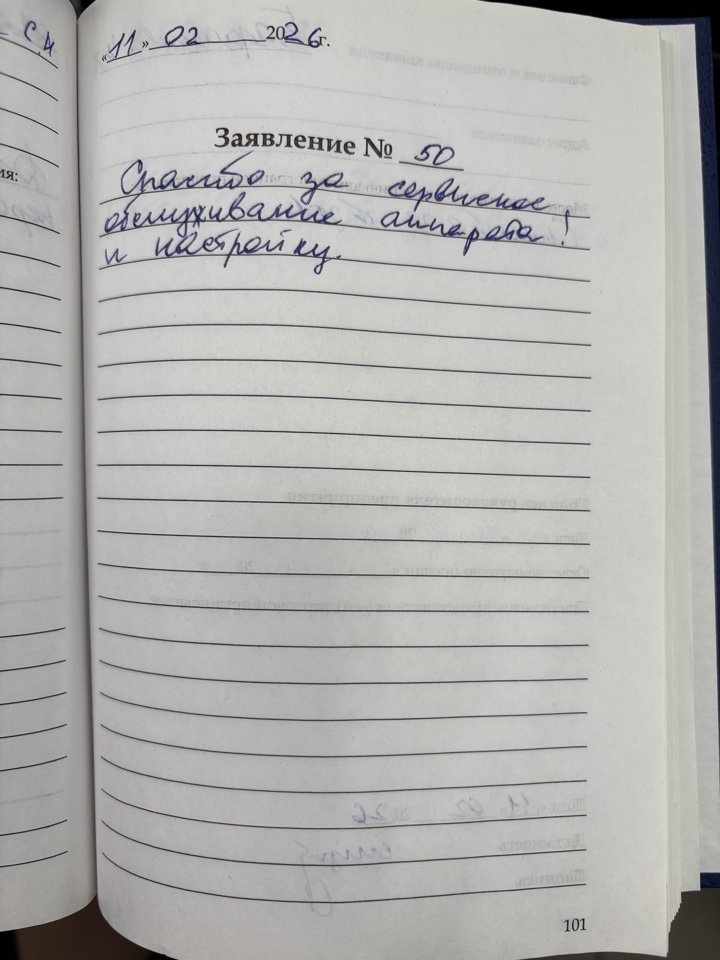 С.Н
ия:
«11» 02 2026г.
Заявление № 50
Спасибо за сервисное
обслуживание аппарата!
и настройку.
101